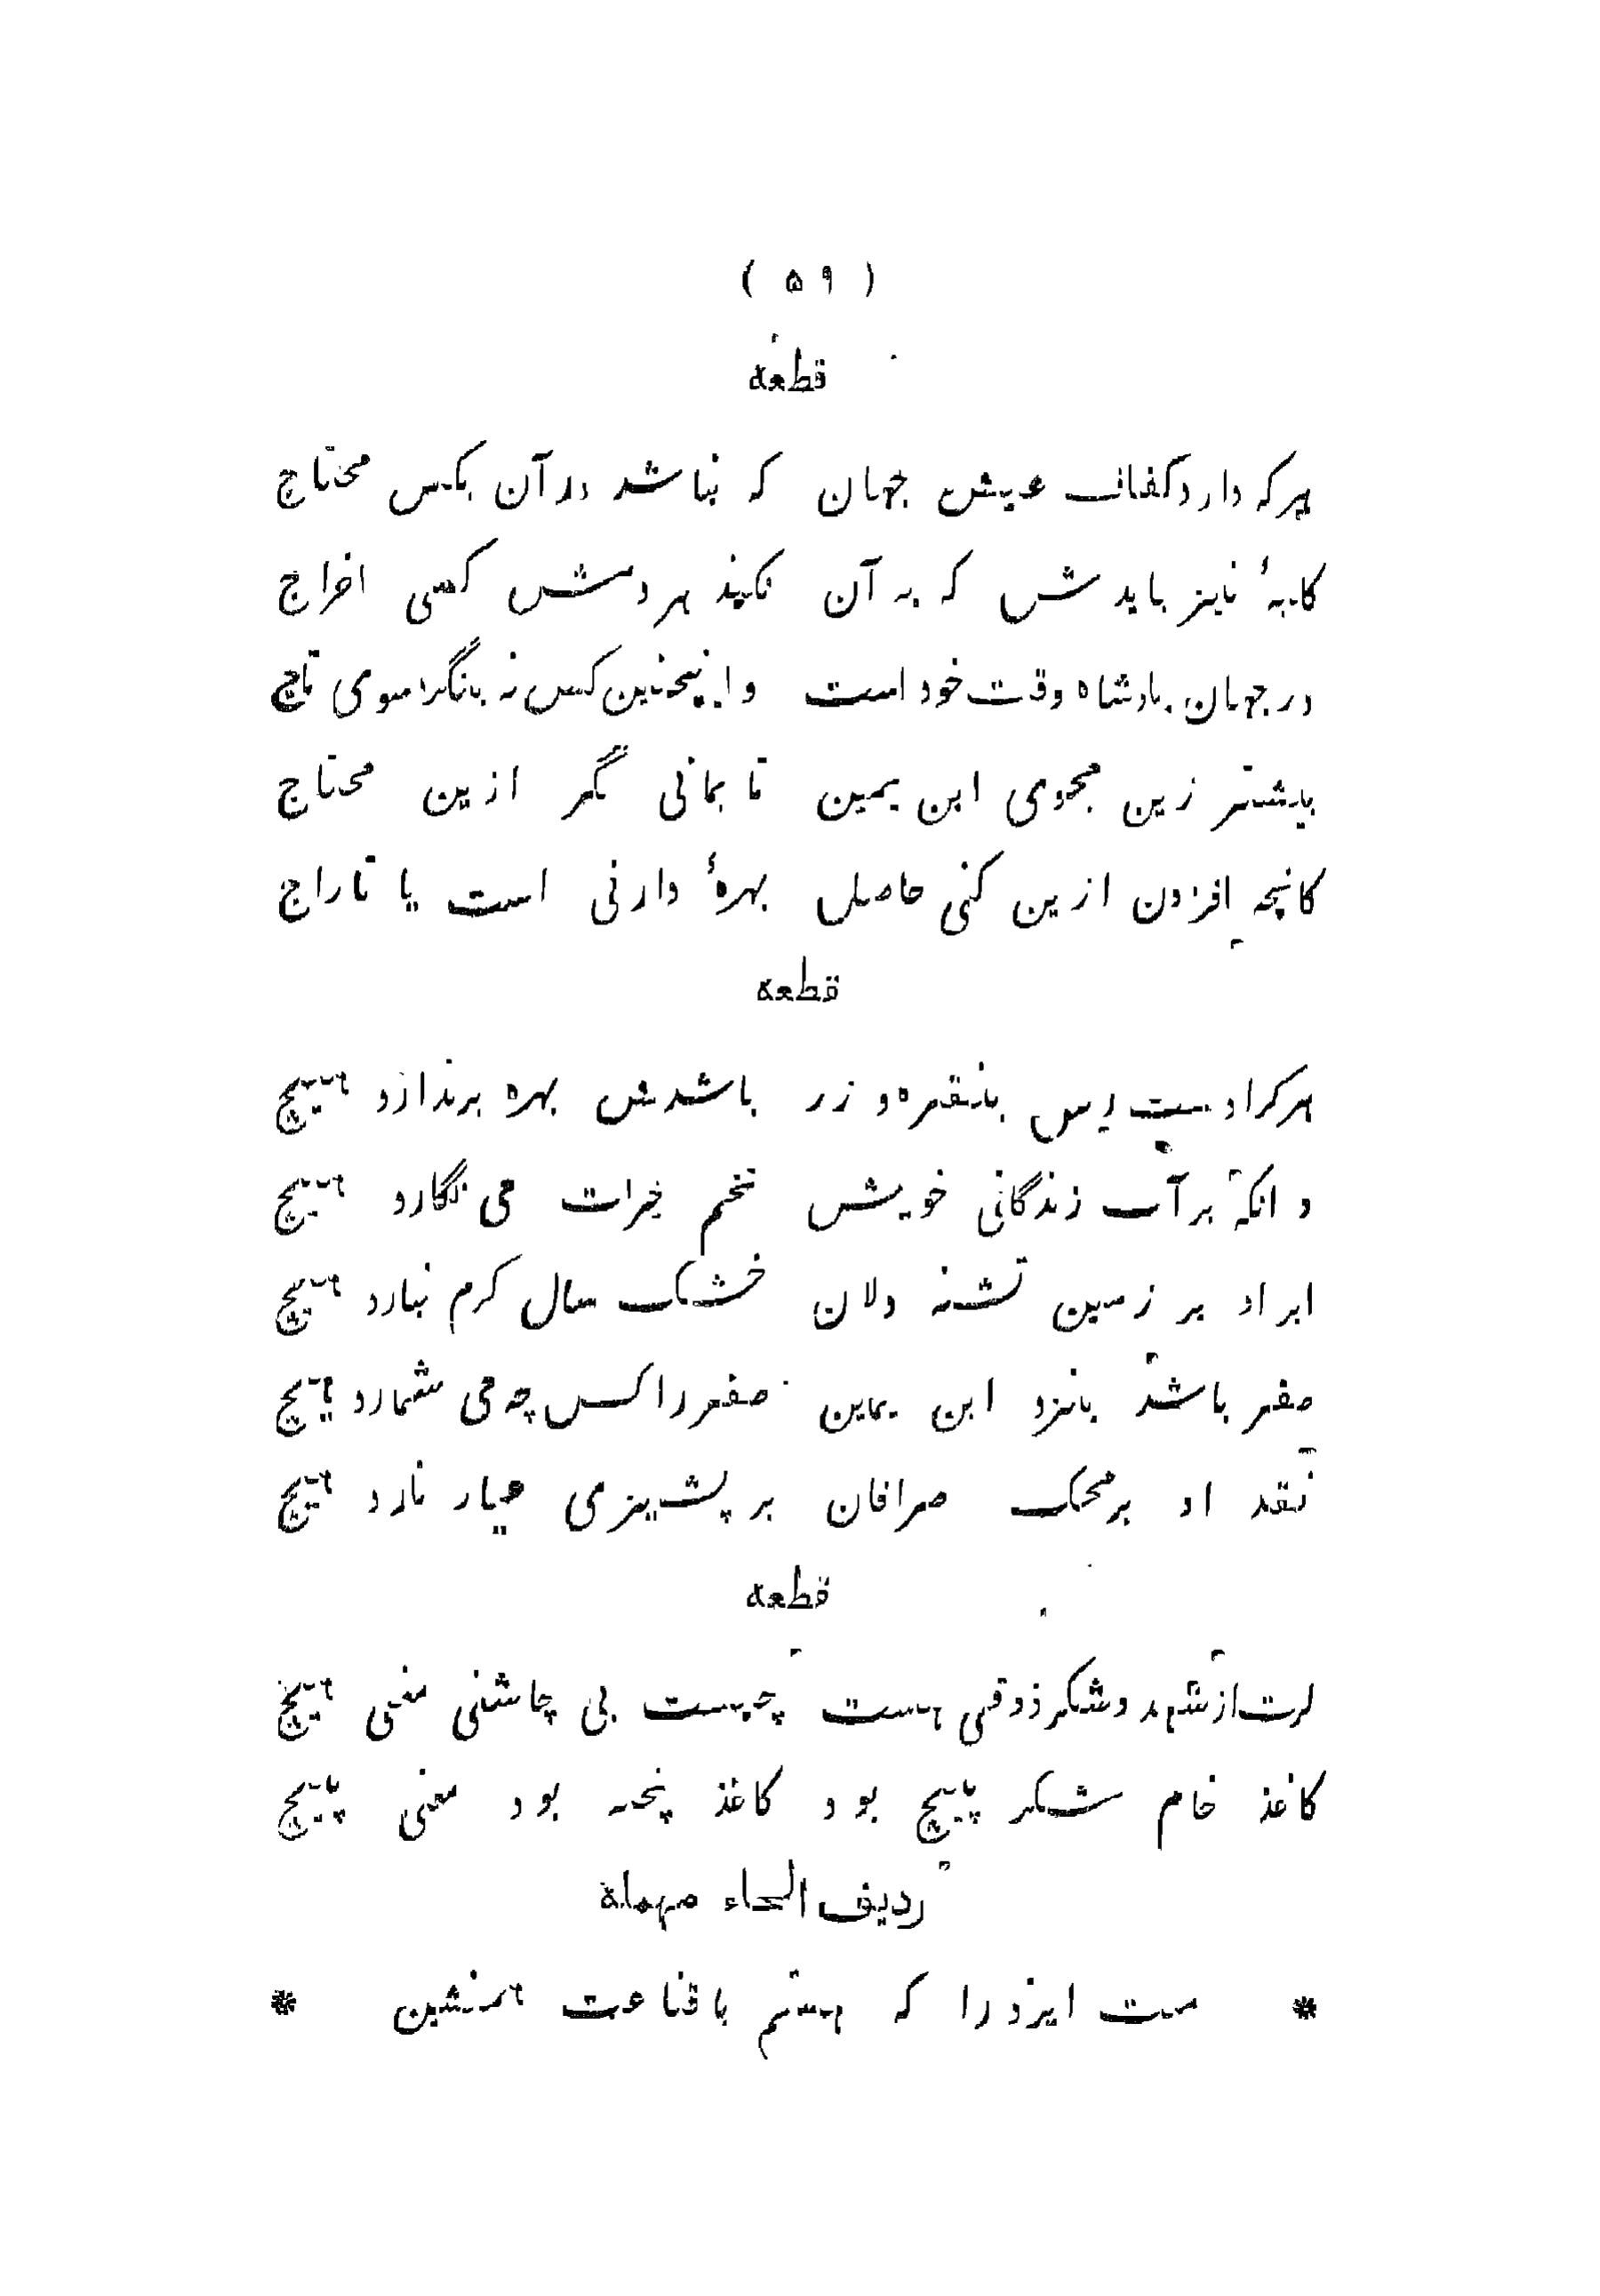 ( ۵۹ )
قطعه
هرکه دارد کفاف عیش جهان که نباشد در آن بکس محتاج
کلبهٔ نیز بایدش که به آن نکند هر دمش کسی اخراج
در جهان پادشاه وقت خود است و اینچنین کس نه بانگر سوی تاج
بیشتر زین مجوی ابن یمین تا بمانی مگر ازین محتاج
کانچه افزون ازین کنی حاصل بهرهٔ وارثی است یا تاراج
قطعه
هرکرا دست رس بنقره و زر باشدش بهره برندارد هیچ
وانکه بر آب زندگانی خویش تخم خیرات می نکارد هیچ
ابر او بر زمین تشنه دلان خشک سال کرم نبارد هیچ
صفر باشد بنزد ابن یمین صفر را کس چه می شمارد هیچ
نقد او بر محک صرافان بر پشیزی عیار نارد هیچ
قطعه
گرت از شهد و شکر ذوقی هست چیست بی چاشنی معنی هیچ
کاغذ خام شکر پیچ بود کاغذ پخته بود معنی پیچ
ردیف الحاء مهملة
* منت ایزد را که هستم با قناعت همنشین *